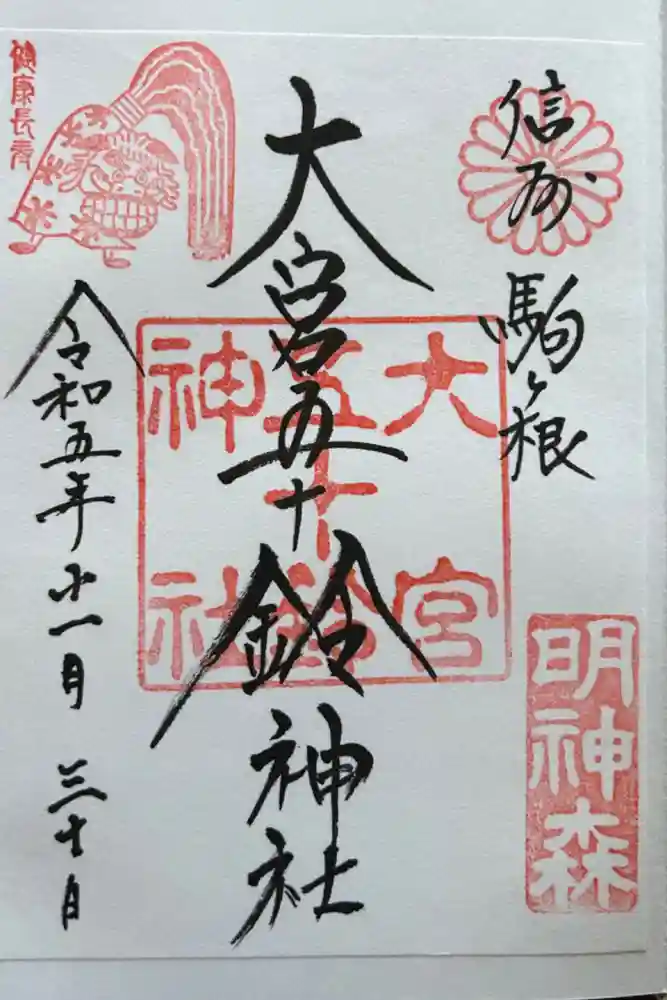 信州 駒ヶ根
明神森
大宮五十鈴神社
大宮
五十鈴
神社
令和五年十一月 三十日
健康長寿